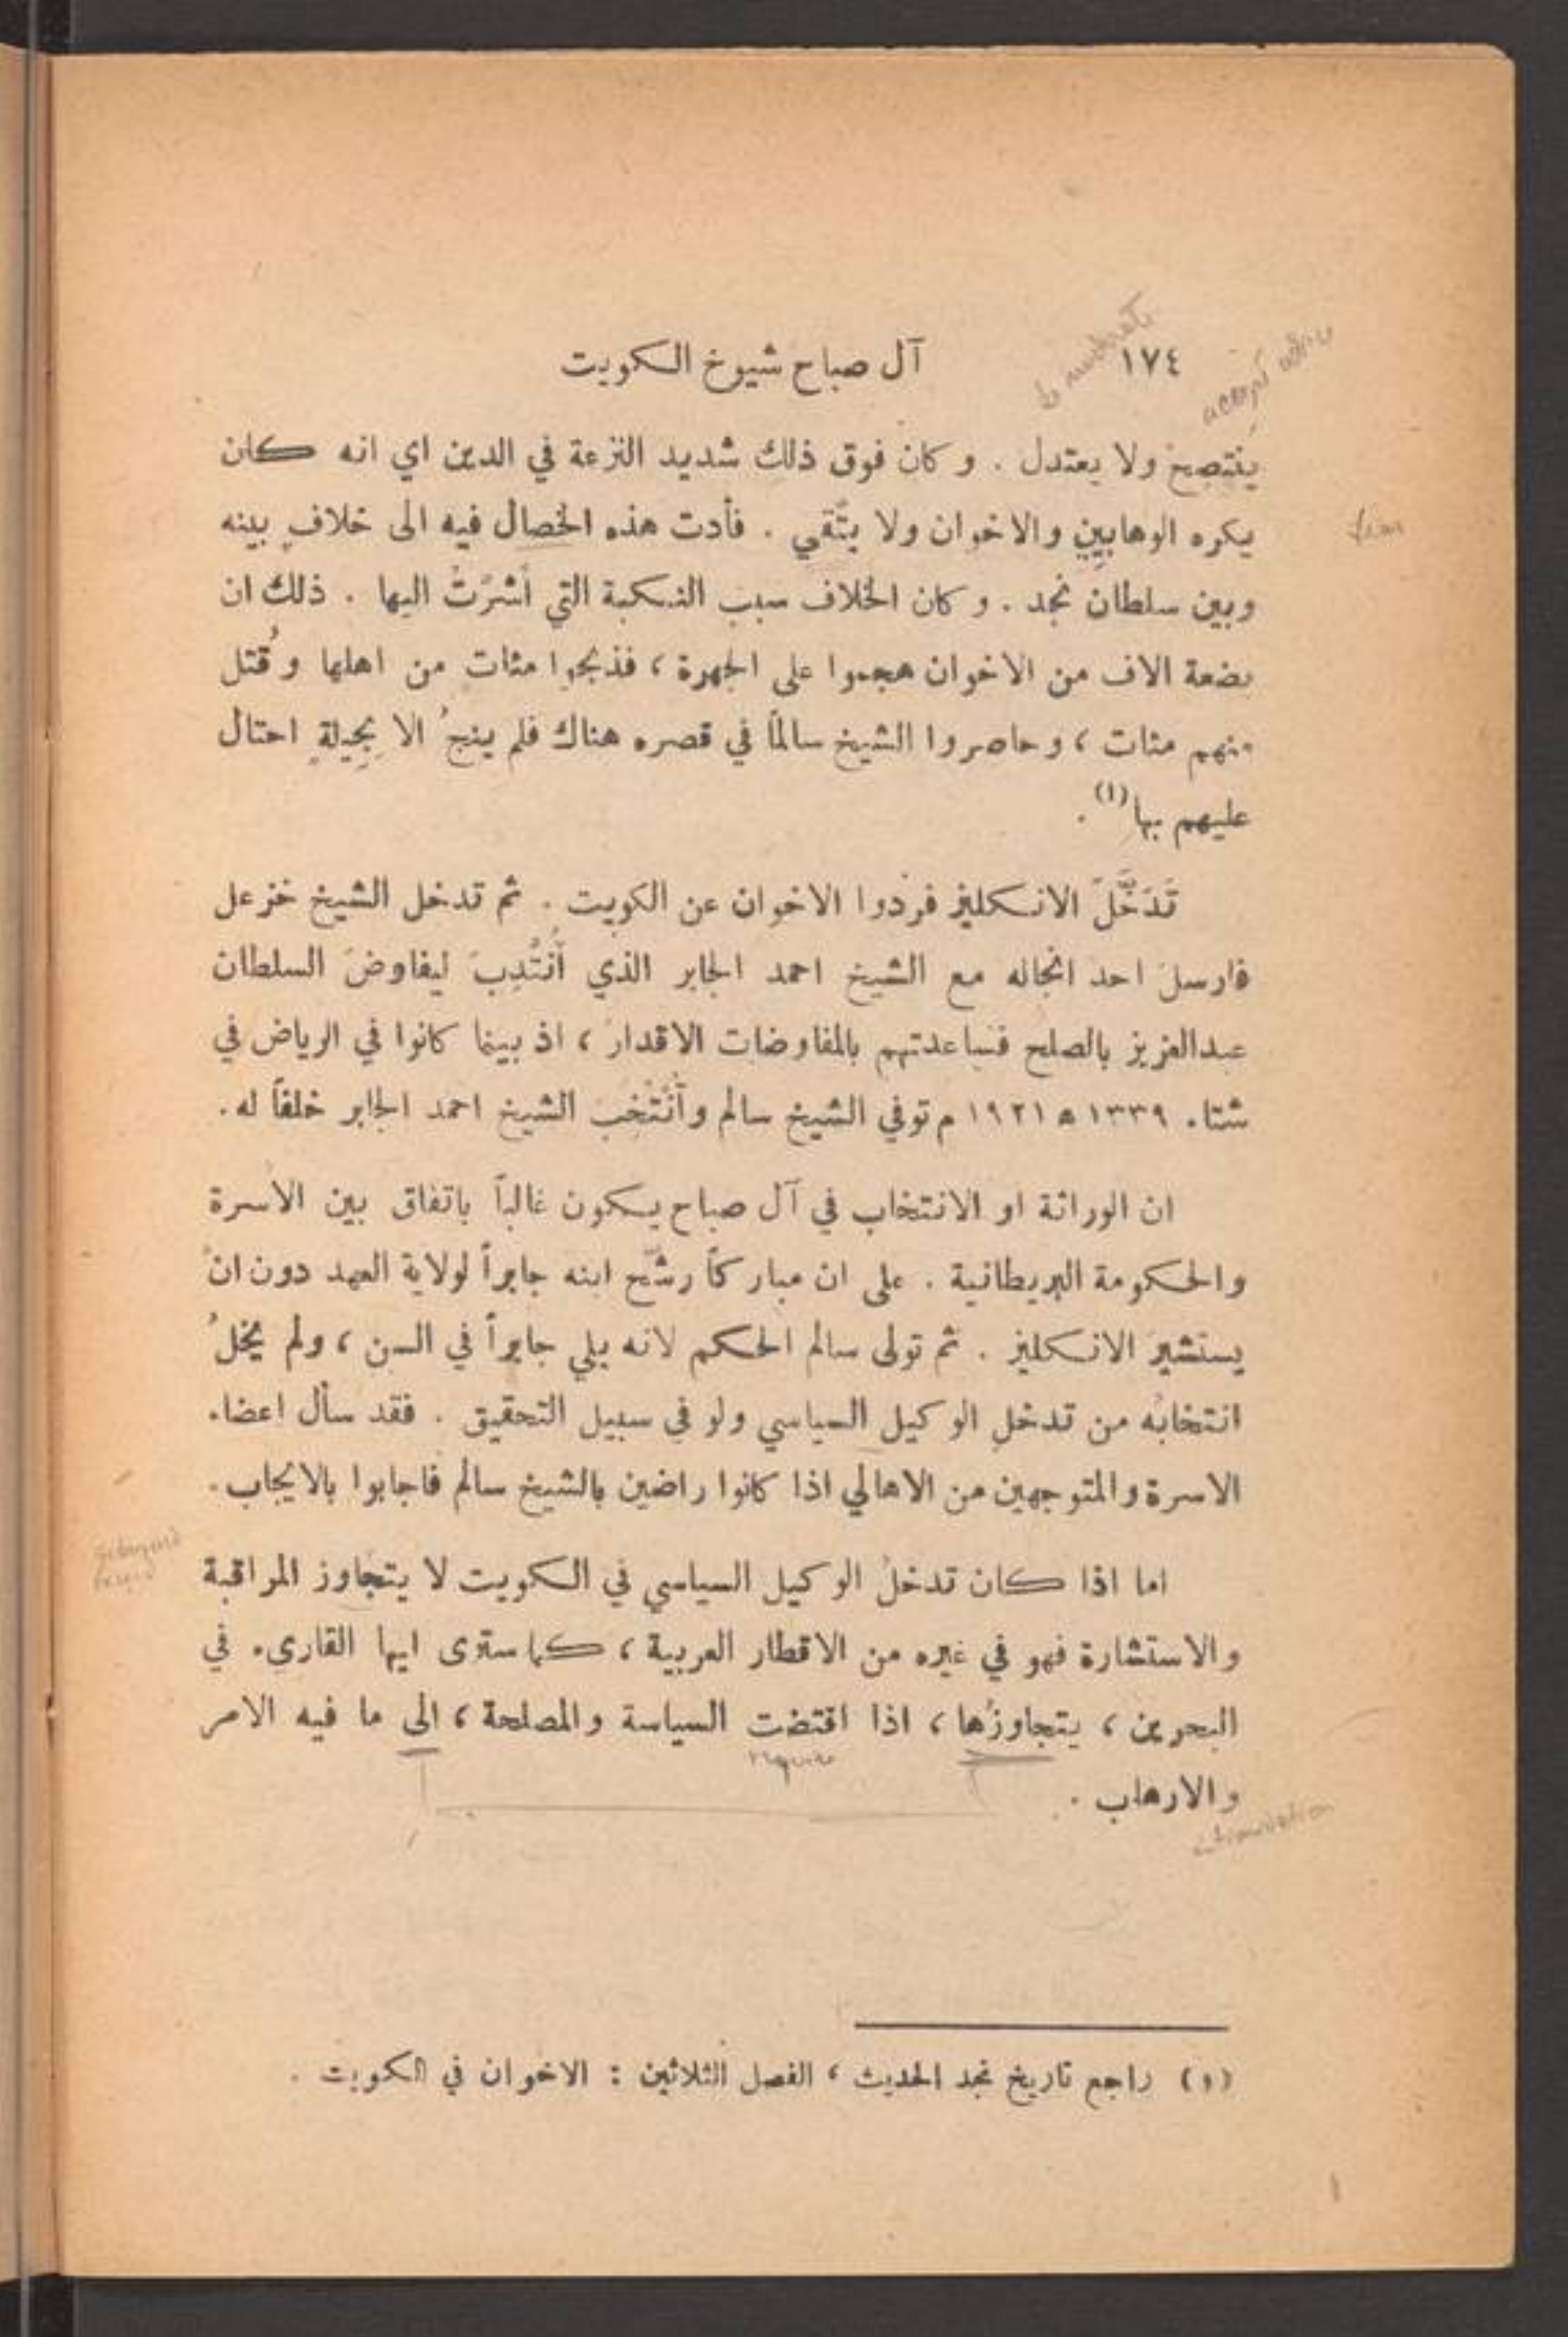 ١٧٤ آل صباح شيوخ الكويت
to moderate
accept advice
ينتصح ولا يعتدل . وكان فوق ذلك شديد النزعة في الدين اي انه كان
يكره الوهابيين والاخوان ولا يتّقي . فأدت هذه الخصال فيه الى خلافٍ بينه
fear
وبين سلطان نجد . وكان الخلاف سبب النكبة التي أشرْتُ اليها . ذلك ان
بضعة الاف من الاخوان هجموا على الجهرة ، فذبحوا مئات من اهلها وقُتل
منهم مئات ، وحاصروا الشيخ سالماً في قصره هناك فلم ينجُ الا بِحِيلةٍ احتال
عليهم بها (١) .
تَدَخَّلَ الانكليز فردوا الاخوان عن الكويت . ثم تدخل الشيخ خزعل
فارسلَ احد انجاله مع الشيخ احمد الجابر الذي أُنتُدِبَ ليفاوضَ السلطان
عبدالعزيز بالصلح فساعدتهم بالمفاوضات الاقدار ، اذ بينما كانوا في الرياض في
شتاء ١٣٣٩ ه ١٩٢١ م توفي الشيخ سالم وأُنتُخِبَ الشيخ احمد الجابر خلفاً له .
ان الوراثة او الانتخاب في آل صباح يكون غالباً باتفاق بين الاسرة
والحكومة البريطانية . على ان مباركاً رشّح ابنه جابراً لولاية العهد دون ان
يستشيرَ الانكليز . ثم تولى سالم الحكم لانه يلي جابراً في السن ، ولم يخلُ
انتخابُه من تدخلِ الوكيل السياسي ولو في سبيل التحقيق . فقد سأل اعضاء
الاسرة والمتوجهين من الاهالي اذا كانوا راضين بالشيخ سالم فاجابوا بالايجاب .
اما اذا كان تدخلُ الوكيل السياسي في الكويت لا يتجاوز المراقبة
والاستشارة فهو في غيره من الاقطار العربية ، كما سترى ايها القارىء في
البحرين ، يتجاوزُها ، اذا اقتضت السياسة والمصلحة ، الى ما فيه الامر
require
والارهاب .
intimidation
(١) راجع تاريخ نجد الحديث ، الفصل الثلاثين : الاخوان في الكويت .